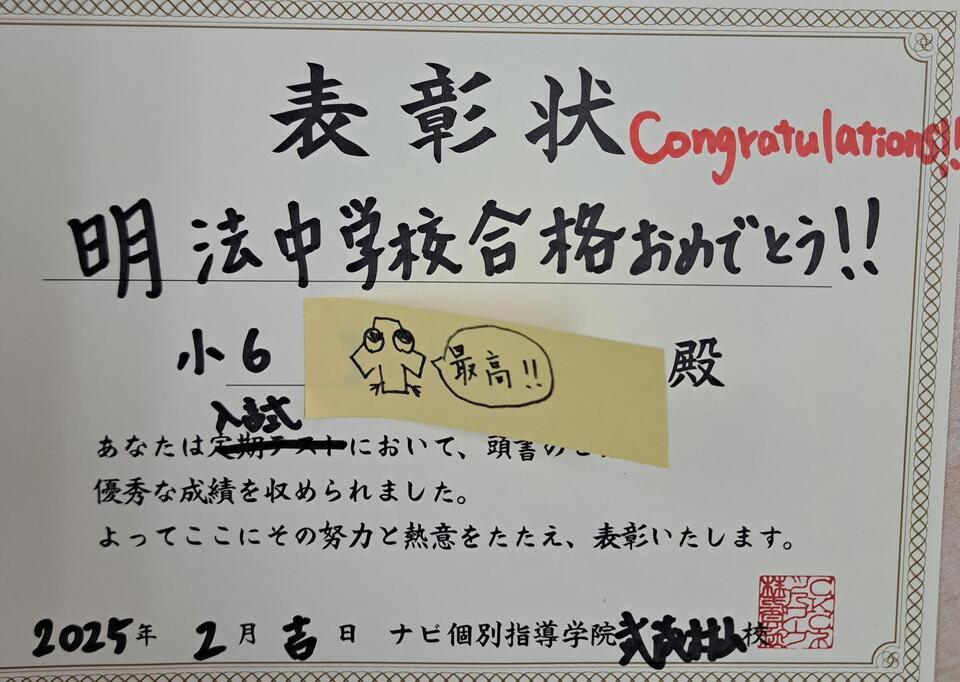 表彰状
Congratulations!!
明法中学校合格おめでとう!!
小6 殿
最高!!
入試
あなたは定期テストにおいて、頭書のと
優秀な成績を収められました。
よってここにその努力と熱意をたたえ、表彰いたします。
2025年 2月 吉日 ナビ個別指導学院 校